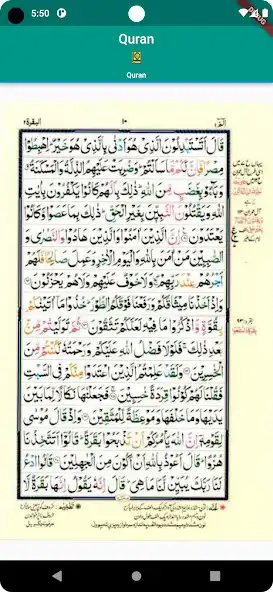 5:50
DEBUG
Quran
Quran
البقرة ٢
١٠
الٓمّ ١
قَالَ اَتَسْتَبْدِلُوْنَ الَّذِیْ هُوَ اَدْنٰی بِالَّذِیْ هُوَ خَیْرٌ ؕ اِهْبِطُوْا
مِصْرًا فَاِنَّ لَكُمْ مَّا سَاَلْتُمْ ؕ وَضُرِبَتْ عَلَیْهِمُ الذِّلَّةُ وَالْمَسْكَنَةُ
وَبَآءُوْ بِغَضَبٍ مِّنَ اللّٰهِ ؕ ذٰلِكَ بِاَنَّهُمْ كَانُوْا یَكْفُرُوْنَ بِاٰیٰتِ
اللّٰهِ وَیَقْتُلُوْنَ النَّبِیّٖنَ بِغَیْرِ الْحَقِّ ؕ ذٰلِكَ بِمَا عَصَوْا وَّكَانُوْا
یَعْتَدُوْنَ ۝ اِنَّ الَّذِیْنَ اٰمَنُوْا وَالَّذِیْنَ هَادُوْا وَالنَّصٰرٰی وَ
الصّٰبِـِٕیْنَ مَنْ اٰمَنَ بِاللّٰهِ وَالْیَوْمِ الْاٰخِرِ وَعَمِلَ صَالِحًا فَلَهُمْ
اَجْرُهُمْ عِنْدَ رَبِّهِمْ ۚ وَلَا خَوْفٌ عَلَیْهِمْ وَلَا هُمْ یَحْزَنُوْنَ ۝
وَاِذْ اَخَذْنَا مِیْثَاقَكُمْ وَرَفَعْنَا فَوْقَكُمُ الطُّوْرَ ؕ خُذُوْا مَآ اٰتَیْنٰكُمْ
بِقُوَّةٍ وَّاذْكُرُوْا مَا فِیْهِ لَعَلَّكُمْ تَتَّقُوْنَ ۝ ثُمَّ تَوَلَّیْتُمْ مِّنْۢ
بَعْدِ ذٰلِكَ ۚ فَلَوْلَا فَضْلُ اللّٰهِ عَلَیْكُمْ وَرَحْمَتُهٗ لَكُنْتُمْ مِّنَ
الْخٰسِرِیْنَ ۝ وَلَقَدْ عَلِمْتُمُ الَّذِیْنَ اعْتَدَوْا مِنْكُمْ فِی السَّبْتِ
فَقُلْنَا لَهُمْ كُوْنُوْا قِرَدَةً خٰسِـِٕیْنَ ۝ فَجَعَلْنٰهَا نَكَالًا لِّمَا بَیْنَ
یَدَیْهَا وَمَا خَلْفَهَا وَمَوْعِظَةً لِّلْمُتَّقِیْنَ ۝ وَاِذْ قَالَ مُوْسٰی
لِقَوْمِهٖٓ اِنَّ اللّٰهَ یَاْمُرُكُمْ اَنْ تَذْبَحُوْا بَقَرَةً ؕ قَالُوْٓا اَتَتَّخِذُنَا
هُزُوًا ؕ قَالَ اَعُوْذُ بِاللّٰهِ اَنْ اَكُوْنَ مِنَ الْجٰهِلِیْنَ ۝ قَالُوا ادْعُ
لَنَا رَبَّكَ یُبَیِّنْ لَّنَا مَا هِیَ ؕ قَالَ اِنَّهٗ یَقُوْلُ اِنَّهَا بَقَرَةٌ لَّا